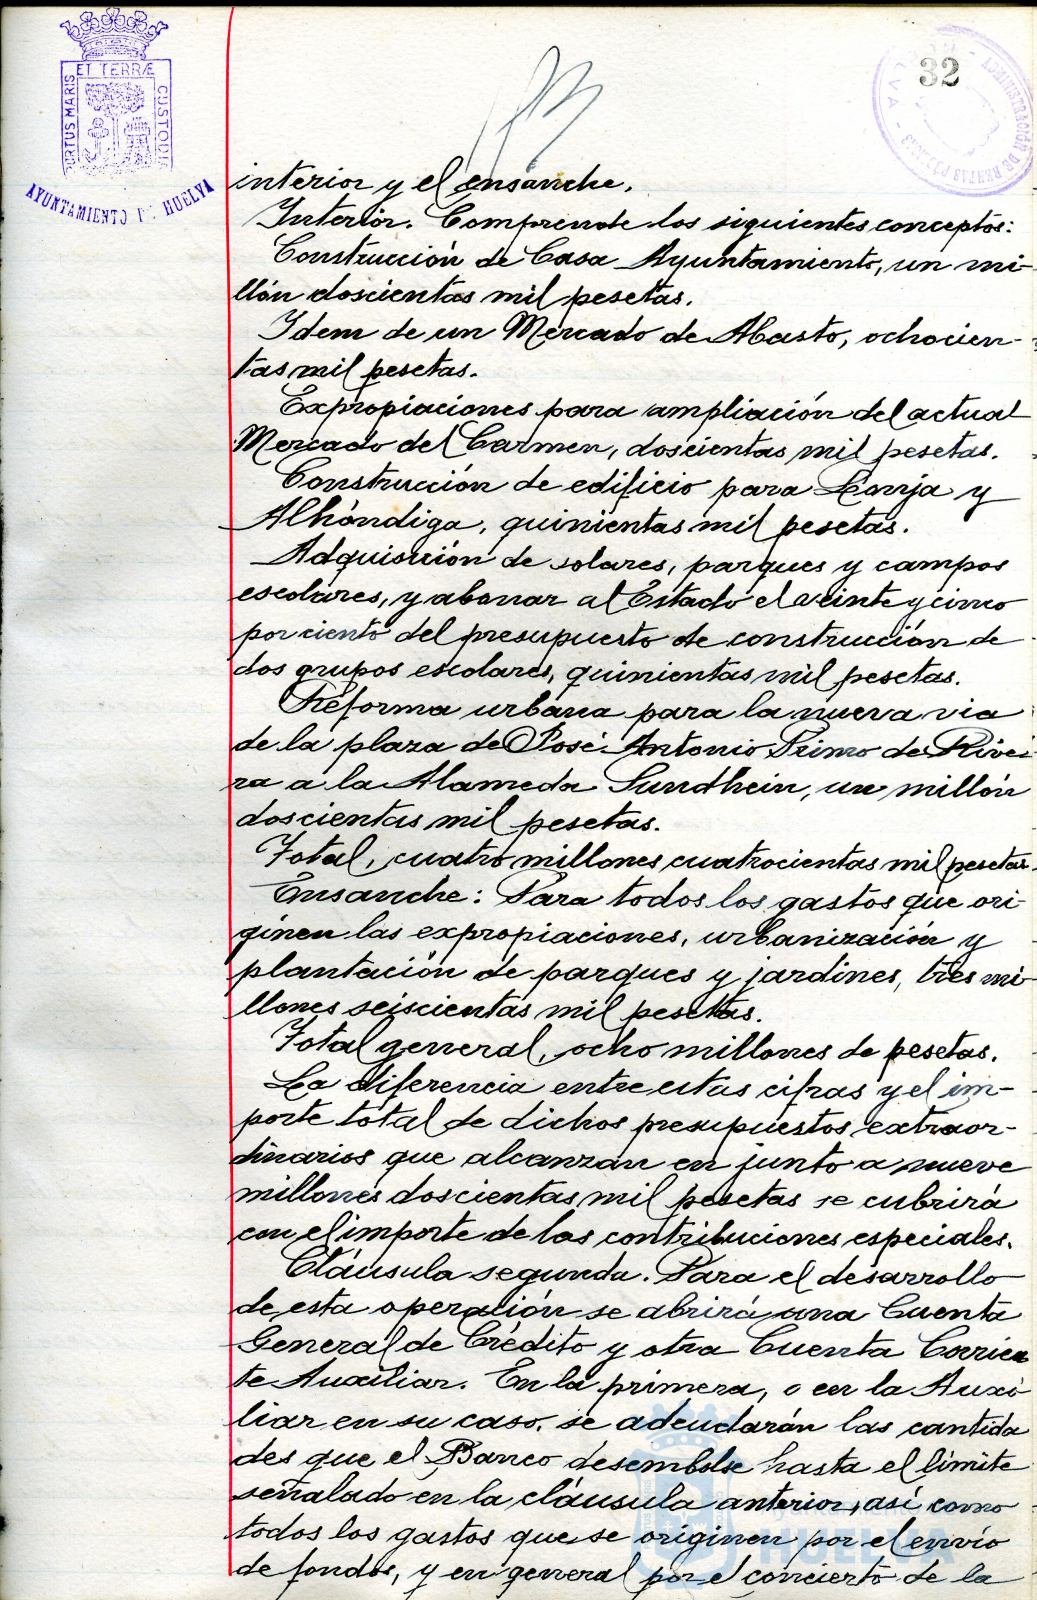 PORTUS MARIS ET TERRÆ CUSTODIA
AYUNTAMIENTO DE HUELVA
ADMINISTRACIÓN DE RENTAS PÚBLICAS
32
interior y el ensanche.
Interior. Comprende los siguientes conceptos:
Construcción de Casa Ayuntamiento, un mi-
llón doscientas mil pesetas.
Idem de un Mercado de Abasto, ochocien-
tas mil pesetas.
Expropiaciones para ampliación del actual
Mercado del Carmen, doscientas mil pesetas.
Construcción de edificio para Lonja y
Alhóndiga, quinientas mil pesetas.
Adquisición de solares, parques y campos
escolares, y abonar al Estado el veinte y cinco
por ciento del presupuesto de construcción de
dos grupos escolares, quinientas mil pesetas.
Reforma urbana para la nueva via
de la plaza de José Antonio Primo de Rive-
ra a la Alameda Sundhein, un millón
doscientas mil pesetas.
Total, cuatro millones cuatrocientas mil pesetas.
Ensanche: Para todos los gastos que ori-
ginen las expropiaciones, urbanización y
plantación de parques y jardines, tres mi-
llones seiscientas mil pesetas.
Total general, ocho millones de pesetas.
La diferencia entre estas cifras y el im-
porte total de dichos presupuestos extraor-
dinarios que alcanzan en junto a nueve
millones doscientas mil pesetas se cubrirá
con el importe de las contribuciones especiales.
Cláusula segunda. Para el desarrollo
de esta operación se abrirá una Cuenta
General de Crédito y otra Cuenta Corrien
te Auxiliar. En la primera, o en la Auxi
liar en su caso, se adeudarán las cantida
des que el Banco desembolse hasta el límite
señalado en la cláusula anterior, así como
todos los gastos que se originen por el envío
de fondos, y en general por el concierto de la
HUELVA